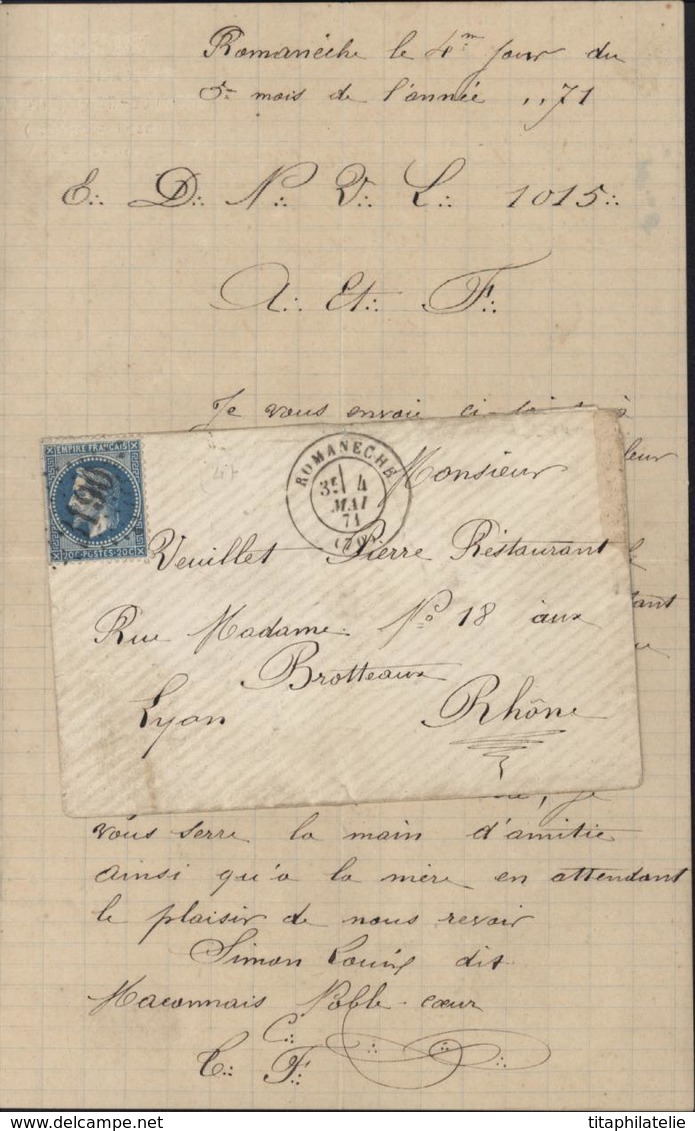 Romanèche le 4m jour du
5m mois de l'année ..71
E∴ D∴ N∴ V∴ L∴ 1015∴
A∴ Et∴ F∴
Je vous envoie
leur
EMPIRE FRANÇAIS
20c POSTES 20c
ROMANECHE
3E 4
MAI
71
(70)
Monsieur
Veuillet Pierre Restaurant
Rue Madame No 18 aux
Brotteaux
Lyon Rhône
tant
je
vous serre la main d'amitie
ainsi qu'a la mère en attendant
le plaisir de nous revoir
Simon Louis dit
Maconnais Noble cœur
C∴
C∴ F∴
titaphilatelie.com